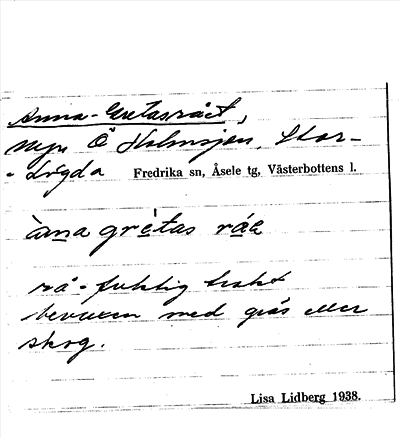 Anna-Gretasrået,
myr Ö Holmsjön, Stor-
-Lögda Fredrika sn, Åsele tg, Västerbottens l.
àna grètas rá
rå = fuktig trakt
bevuxen med gräs eller
skog.
Lisa Lidberg 1938.